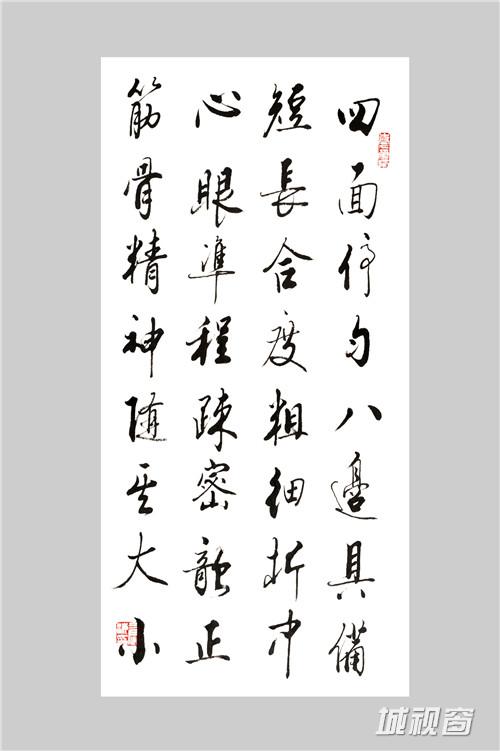 四面停匀八邊具備
短長合度粗细折中
心眼準程疎密欹正
筋骨精神随其大小
城视窗